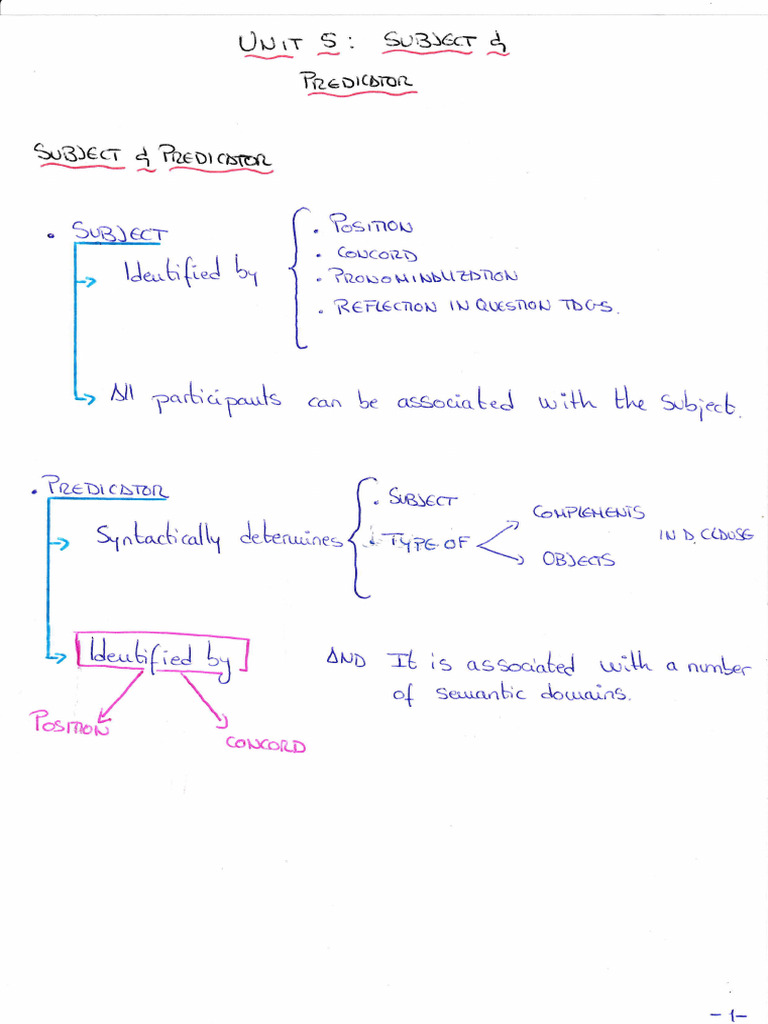 UNIT 5: SUBJECT &
PREDICATOR
SUBJECT & PREDICATOR
• SUBJECT
Identified by
• POSITION
• CONCORD
• PRONOMINALIZATION
• REFLECTION IN QUESTION TAGS.
All participants can be associated with the subject.
• PREDICATOR
Syntactically determines
• SUBJECT
TYPE OF
COMPLEMENTS
OBJECTS
IN A CLAUSE
Identified by
POSITION
CONCORD
AND It is associated with a number
of semantic domains.
-1-